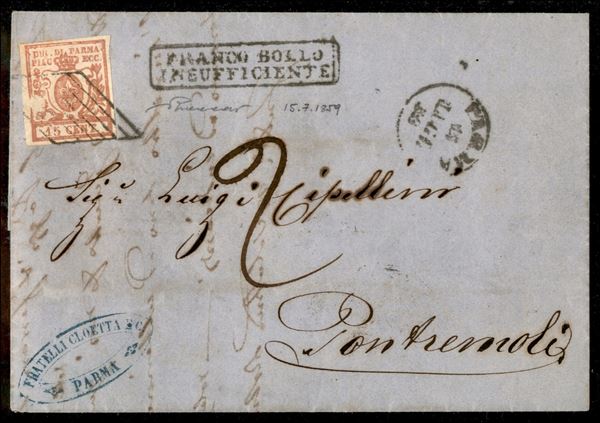 DUC. DI PARMA
PIAC. ECC.
15 CENT.
FRANCO BOLLO
INSUFFICIENTE
15.7.1859
PARMA
15
LUGL
59
2
Sig.r Luigi Cipellini
Pontremoli
FRATELLI CLOETTA E C.
PARMA